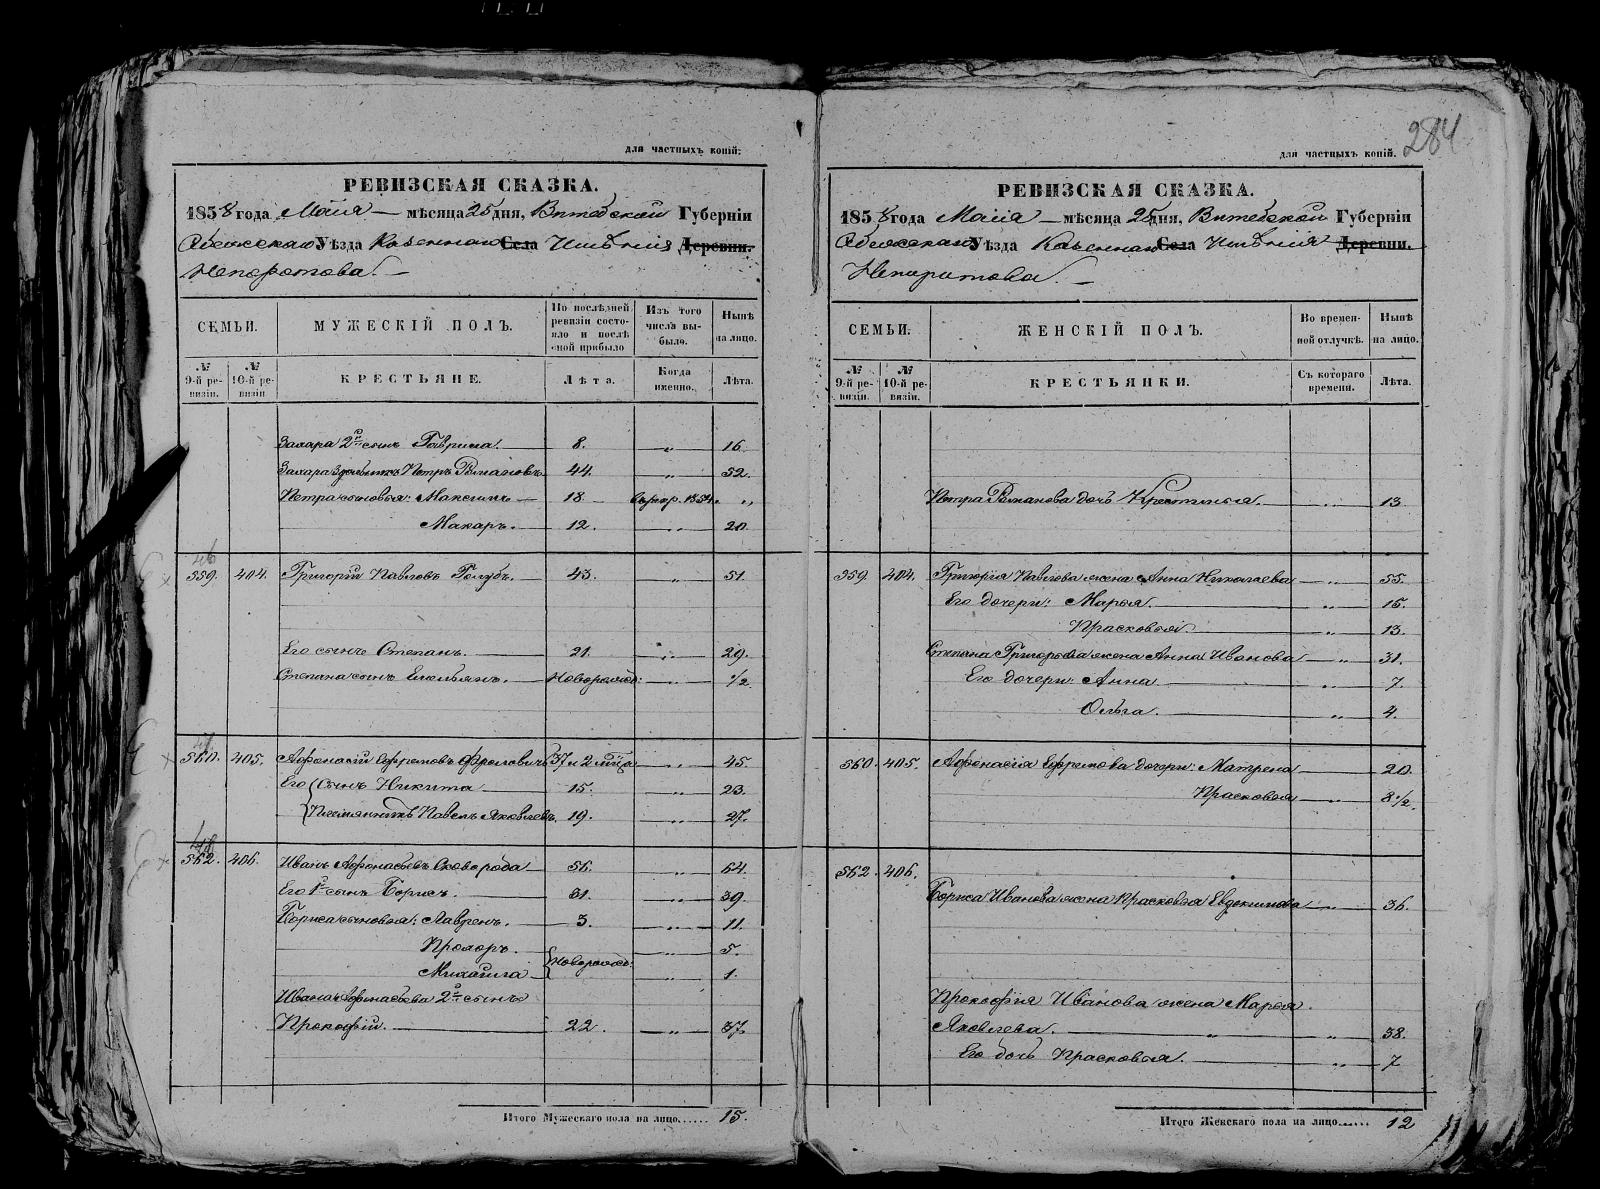 для частныхъ копій:
РЕВИЗСКАЯ СКАЗКА.
1858 года Маія мѣсяца 25 дня, Витебской Губерніи
Уѣзда Казеннаго Села Имѣнія Деревни.
Непоротова.
СЕМЬИ. МУЖЕСКІЙ ПОЛЪ. По послѣдней ревизіи состояло и послѣ оной прибыло Изъ того числа выбыло. Нынѣ на лицо.
№ 9-й ревизіи. № 10-й ревизіи КРЕСТЬЯНЕ. Лѣта. Когда именно. Лѣта.
Захара 2й сынъ Гаврила 8. „ 16.
Захара Петръ Романовъ 44. „ 52.
Петра сыновья: Максимъ 18 1854. „
Макаръ. 12. „ 20
46
559. 404. Григорій Павловъ Голубъ. 43. „ 51.
Его сынъ Степанъ. 21. „ 29.
Степана сынъ Емельянъ. Новорожд: „ 1/2
47
560. 405. Афонасій Ефремовъ 37 и 2 мѣца „ 45.
Его сынъ Никита 15. „ 23.
Племянникъ Павелъ Яковлевъ. 19. „ 27.
48
562. 406. Иванъ Афонасьевъ Сковорода 56. „ 64.
Его 1й сынъ Борисъ. 31. „ 39.
Бориса сыновья: Лавренъ. 3. „ 11.
Прохоръ. „ 5.
Михайла Новорожд: „ 1.
Ивана Афонасьева 2й сынъ
Прокофій. 22. „ 37
Итого Мужескаго пола на лицо...... 15.
284
для частныхъ копій.
РЕВИЗСКАЯ СКАЗКА.
1858 года Маія мѣсяца 25 дня, Витебской Губерніи
Уѣзда Казеннаго Села Имѣнія Деревни.
Непоротова.
СЕМЬИ. ЖЕНСКІЙ ПОЛЪ. Во временной отлучкѣ. Нынѣ на лицо.
№ 9-й ревизіи. № 10-й ревизіи. КРЕСТЬЯНКИ. Съ котораго времени. Лѣта.
Петра Романова дочь „ 13
559 404. Григорія Павлова жена Анна Николаева „ 55.
Его дочери: Марья. „ 15.
Прасковья. „ 13.
Степана Григорьева жена Анна Иванова „ 31.
Его дочери: Анна „ 7.
Ольга. „ 4.
560. 405. Афонасія Ефремова дочери: Матрена „ 20.
Прасковья „ 8 1/2.
562. 406.
Бориса Иванова жена Прасковья Евдокимова „ 36.
Прокофія Иванова жена Марья
Яковлева. „ „ 38.
Его дочь Прасковья. „ 7
Итого Женскаго пола на лицо...... 12